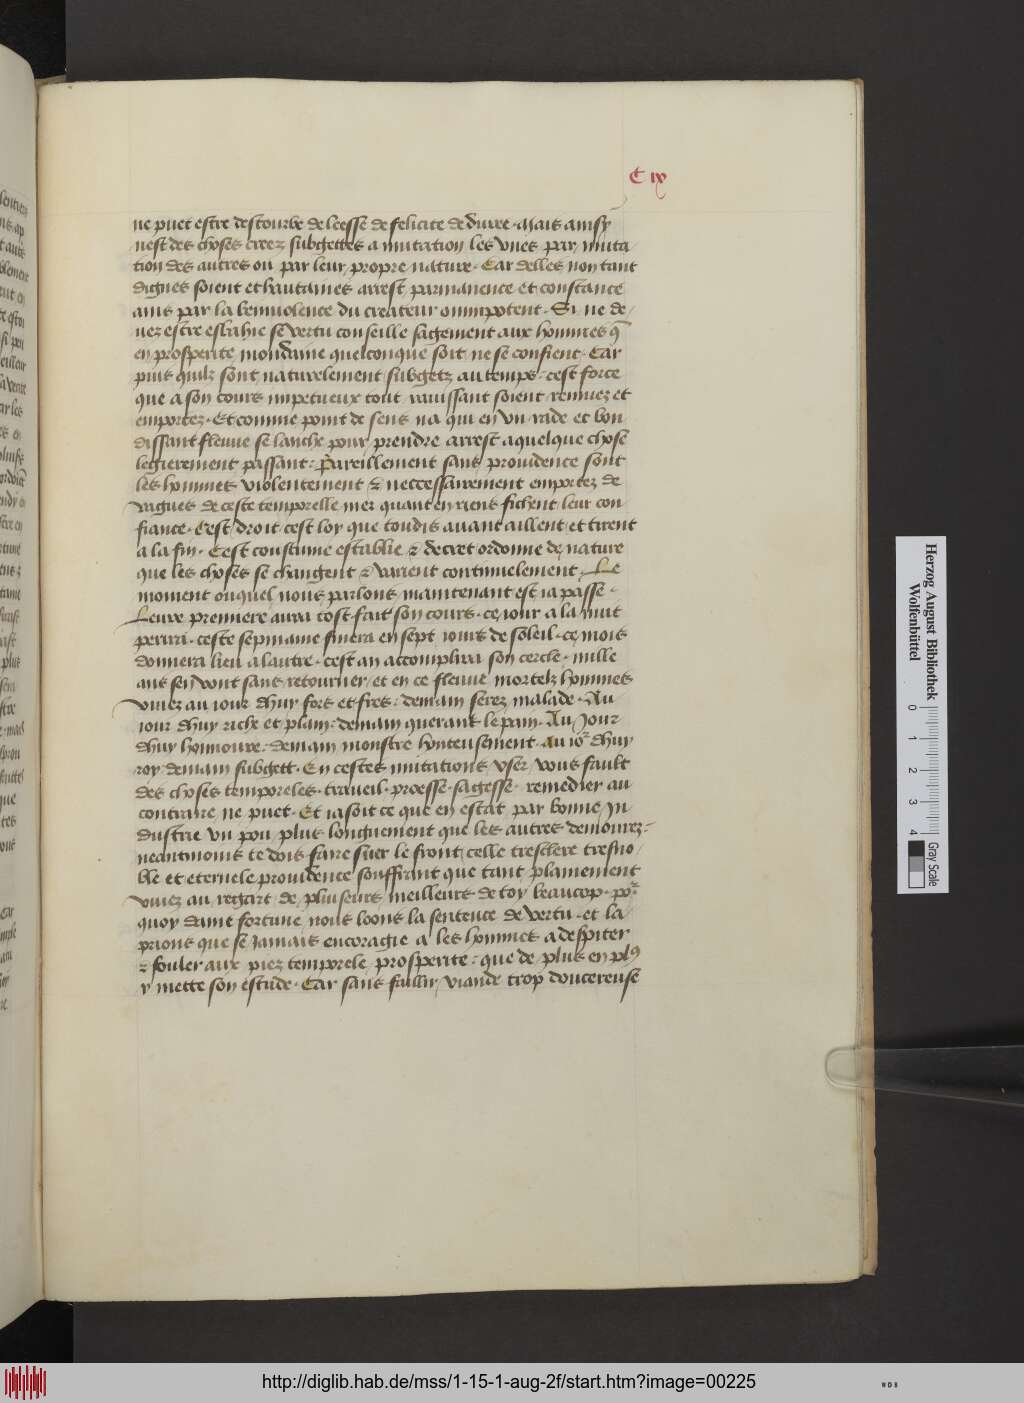 C ix
ne puet estre destourbe de leesse de felicite de duree. Mais ainsy
nest des choses creez subgettes a mutation les vnes par muta
tion des autres ou par leur propre nature. Car delles non tant
dignes soient et haultaines arrest parmanence et constance
ains par la beniuolence du createur omnipotent. Si ne de/
uez estre esbahie se vertu conseille sagement aux hommes q̄
en prosperite mondaine quelconque soit ne se confient. Car
puis quilz sont naturelement subgetz au temps: cest force
que a son cours impetueux tout rauissant soient remuez et
emportez. Et comme point de sens na qui en vn rade et bon
dissant fleuue se lanche pour prendre arrest a quelque chose
legierement passant: Pareillement sans prouidence sont
les hommes violentement ⁊ neccessairement emportez de
vagues de ceste temporelle mer quant en riens fichent leur con
fiance. Cest droit cest loy que toudis auant aillent et tirent
a la fin. Cest coustume establie ⁊ decret ordonne de nature
que les choses se changent ⁊ varient continuelement. Le
moment ouquel nous parlons maintenant est ia passe.
Leure premiere aura tost fait son cours. ce iour a la nuit
perira. ceste sepmaine finera en sept iours de soleil. ce mois
donnera lieu a lautre. cest an accomplira son cercle. mille
ans sen vont sans retourner, et en ce fleuue mortelz hommes
viuez au iour dhuy fors et fres: demain serez malade. Au
iour dhuy riche et plain: demain querant le pain. Au Jour
dhuy honnoure: demain monstre honteusement. Au ioʳ dhuy
roy demain subgett. En cestes mutations vser vous fault
des choses temporeles. traueil. proesse. sagesse. remedier au
contraire ne puet. Et ia soit ce que en estat par bonne In
dustrie vn pou plus longuement que les autres demourez:
neantmoins te dois faire suer le front celle treschere tresno/
ble et eternele prouidence souffrant que tant plainement
viuez au regart de pluiseurs meilleurs de toy beaucop. poʳ
quoy dame fortune nous loons la sentence de vertu. et la
prions que se Jamais encoragie a les hommes a despiter
⁊ fouler aux piez temporele prosperite: que de plus en plꝰ
y mette son estude. Car sans faillir viande trop doucereuse
Herzog August Bibliothek
Wolfenbüttel
0 1 2 3 4
Gray Scale
http://diglib.hab.de/mss/1-15-1-aug-2f/start.htm?image=00225